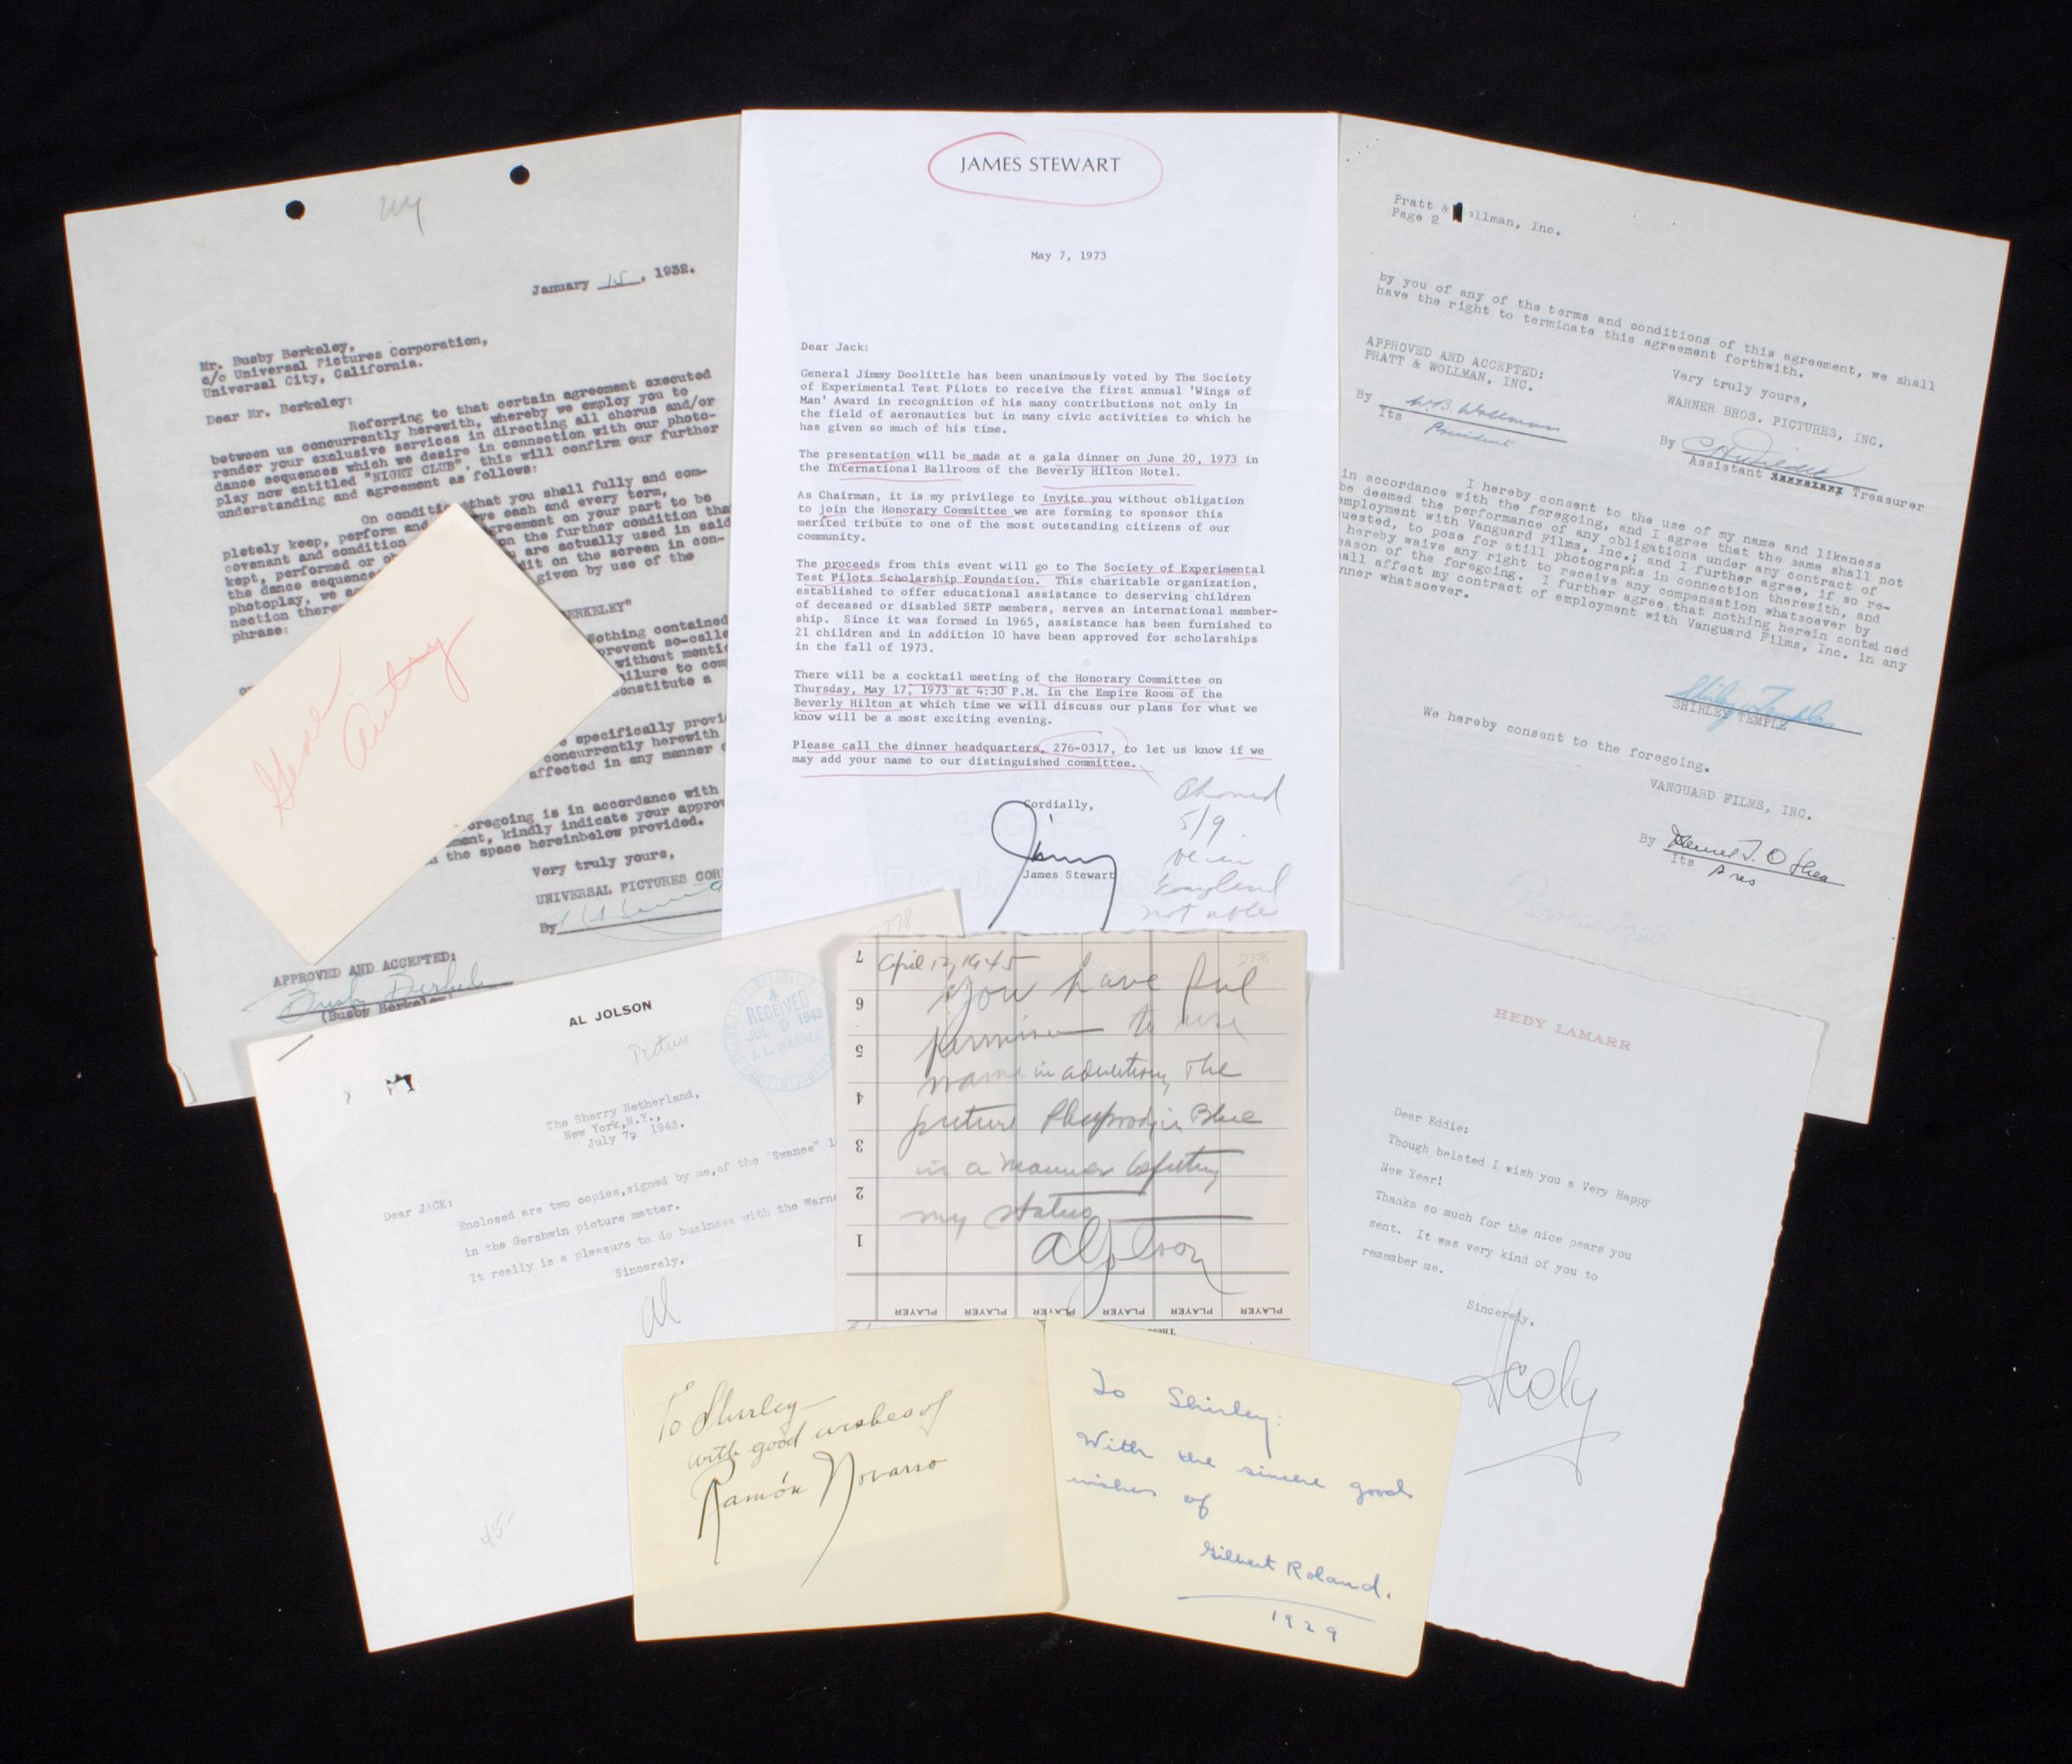 January 15, 1932.
Mr. Busby Berkeley,
c/o Universal Pictures Corporation,
Universal City, California.
Dear Mr. Berkeley:
Referring to that certain agreement executed
between us concurrently herewith, whereby we employ you to
render your exclusive services in directing all chorus and/or
dance sequences which we desire in connection with our photo-
play now entitled "NIGHT CLUB", this will confirm our further
understanding and agreement as follows:
On condition that you shall fully and com-
pletely keep, perform and each and every term,
covenant and condition agreement on your part to be
kept, performed or on the further condition
the dance sequence are actually used in said
photoplay, we on the screen in con-
nection given by use of the
phrase:
BERKELEY"
Nothing contained
prevent
without
failure to
constitute a
specifically
concurrently herewith
affected in any manner
foregoing is in accordance with
kindly indicate your
the space hereinbelow provided.
Very truly yours,
UNIVERSAL PICTURES
By
APPROVED AND ACCEPTED:
Busby Berkeley
(Busby Berkeley)
Gene
Autry
JAMES STEWART
May 7, 1973
Dear Jack:
General Jimmy Doolittle has been unanimously voted by The Society
of Experimental Test Pilots to receive the first annual 'Wings of
Man' Award in recognition of his many contributions not only in
the field of aeronautics but in many civic activities to which he
has given so much of his time.
The presentation will be made at a gala dinner on June 20, 1973 in
the International Ballroom of the Beverly Hilton Hotel.
As Chairman, it is my privilege to invite you without obligation
to join the Honorary Committee we are forming to sponsor this
merited tribute to one of the most outstanding citizens of our
community.
The proceeds from this event will go to The Society of Experimental
Test Pilots Scholarship Foundation. This charitable organization,
established to offer educational assistance to deserving children
of deceased or disabled SETP members, serves an international member-
ship. Since it was formed in 1965, assistance has been furnished to
21 children and in addition 10 have been approved for scholarships
in the fall of 1973.
There will be a cocktail meeting of the Honorary Committee on
Thursday, May 17, 1973 at 4:30 P.M. in the Empire Room of the
Beverly Hilton at which time we will discuss our plans for what we
know will be a most exciting evening.
Please call the dinner headquarters, 276-0317, to let us know if we
may add your name to our distinguished committee.
Cordially,
Jimmy
James Stewart
Phoned
5/9
England
not able
Pratt & Wollman, Inc.
Page 2
by you of any of the terms and conditions of this agreement, we shall
have the right to terminate this agreement forthwith.
Very truly yours,
APPROVED AND ACCEPTED:
PRATT & WOLLMAN, INC.
WARNER BROS. PICTURES, INC.
By W.B. Wollman
Its President
By
Assistant Treasurer
I hereby consent to the use of my name and likeness
in accordance with the foregoing, and I agree that the same shall not
be deemed the performance of any obligations under any contract of
employment with Vanguard Films, Inc.; and I further agree, if so re-
quested, to pose for still photographs in connection therewith, and
hereby waive any right to receive any compensation whatsoever by
reason of the foregoing. I further agree that nothing herein contained
shall affect my contract of employment with Vanguard Films, Inc. in any
manner whatsoever.
Shirley Temple
SHIRLEY TEMPLE
We hereby consent to the foregoing.
VANGUARD FILMS, INC.
By Daniel T. O'Shea
Its Pres
AL JOLSON
Picture
RECEIVED
JUL 9 1943
J. L. WARNER
The Sherry Netherland,
New York, N.Y.,
July 7, 1943.
Dear JACK:
Enclosed are two copies,signed by me,of the "Swanee"
in the Gershwin picture matter.
It really is a pleasure to do business with the
Sincerely,
Al
45-
April 12, 1945
You have ful
permission to use
name in advertising the
picture Rhapsody in Blue
in a manner befitting
my status
Al Jolson
7
6
5
4
3
2
1
PLAYER PLAYER PLAYER PLAYER PLAYER PLAYER
HEDY LAMARR
Dear Eddie:
Though belated I wish you a Very Happy
New Year!
Thanks so much for the nice pears you
sent. It was very kind of you to
remember me.
Sincerely,
Hedy
To Shirley—
with good wishes of
Ramón Novarro
To Shirley:
With the sincere good
wishes of
Gilbert Roland.
1929